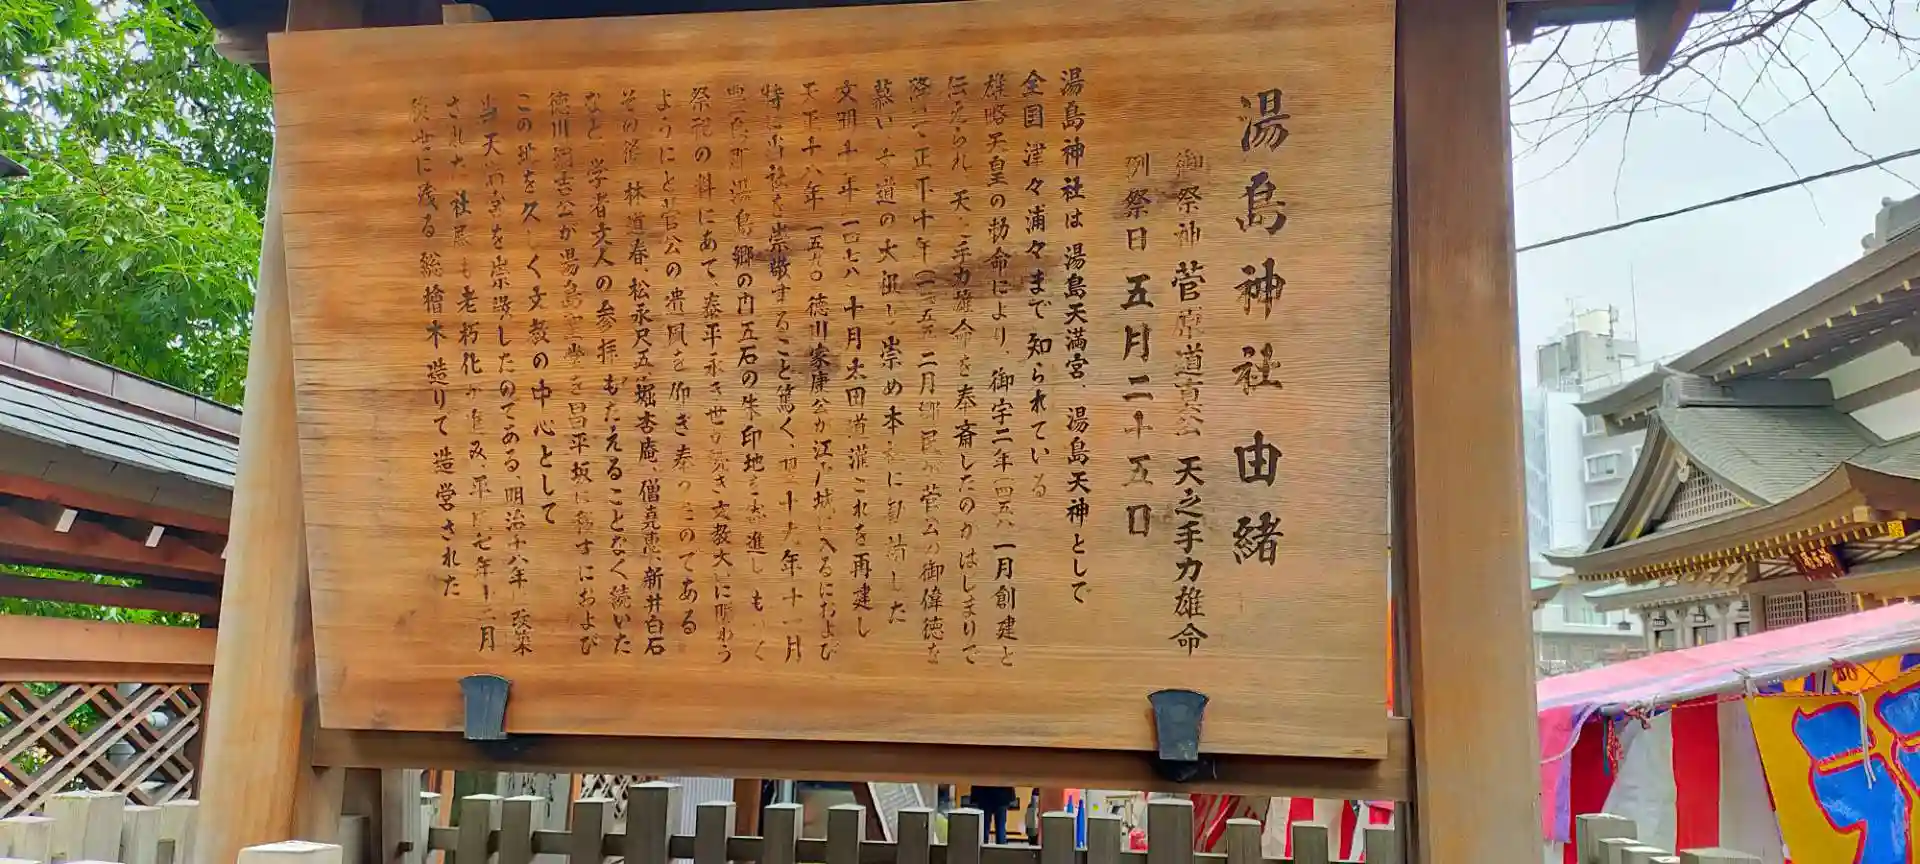 湯島神社由緒
御祭神 菅原道真公 天之手力雄命
例祭日 五月二十五日
湯島神社は湯島天満宮、湯島天神として
全国津々浦々まで知られている
雄略天皇の勅命により、御宇二年（四五八）一月創建と
伝えられ 天之手力雄命を奉斎したのがはじまりで
降って正平十年（一三五五）二月郷民が菅公の御偉徳を
慕い 文道の大祖と崇め本社に勧請した
文明十年（一四七八）十月太田道灌これを再建し
天正十八年（一五九〇）徳川家康公が江戸城に入るにおよび
特に当社を崇敬すること篤く、翌十九年十一月
豊島郡湯島郷の内五石の朱印地を寄進し もって
祭祀の料にあて、泰平永き世が続き文教大いに賑わう
ようにと菅公の遺風を仰ぎ奉ったのである
その後 林道春、松永尺五、堀杏庵、僧堯恵、新井白石
など 学者文人の参拝もたえることなく続いた
徳川綱吉公が湯島聖堂を昌平坂に移すにおよび
この地を久しく文教の中心として
当天満宮を崇敬したのである、明治十八年に改築
された社殿も老朽化が進み、平成七年十二月
後世に残る総檜木造りで造営された